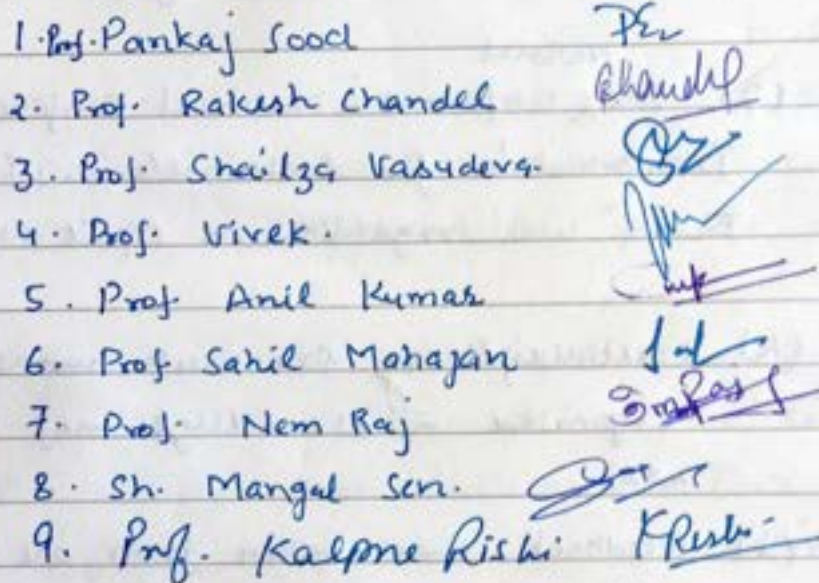 1. Prof. Pankaj Sood
2. Prof. Rakesh Chandel Chandel
3. Prof. Shailza Vasudeva.
4. Prof. Vivek.
5. Prof. Anil Kumar
6. Prof Sahil Mahajan
7. Prof. Nem Raj
8. Sh. Mangal Sen.
9. Prof. Kalpne Rishi KRishi